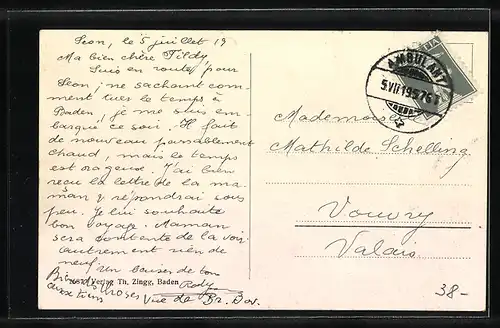 Leon, le 5 juillet 19
Ma bien chère Tildy,
Suis en route pour
Leon, ne sachant com-
ment tuer le temps à
Baden, je me suis em-
barqué ce soir. Il fait
de nouveau passablement
chaud, mais le temps
est orageux. J'ai bien
reçu la lettre de la ma-
man & répondrai sous
peu. Je lui souhaite
bon voyage. Maman
sera contente de la voir.
Autrement rien de
neuf. Un baiser de ton
Rody
Bien des choses
aux tiens
Verlag Th. Zingg, Baden
Vue de
AMBULANT
5.VII.19
Mademoiselle
Mathilde Schelling
Vouvry
Valais
38-